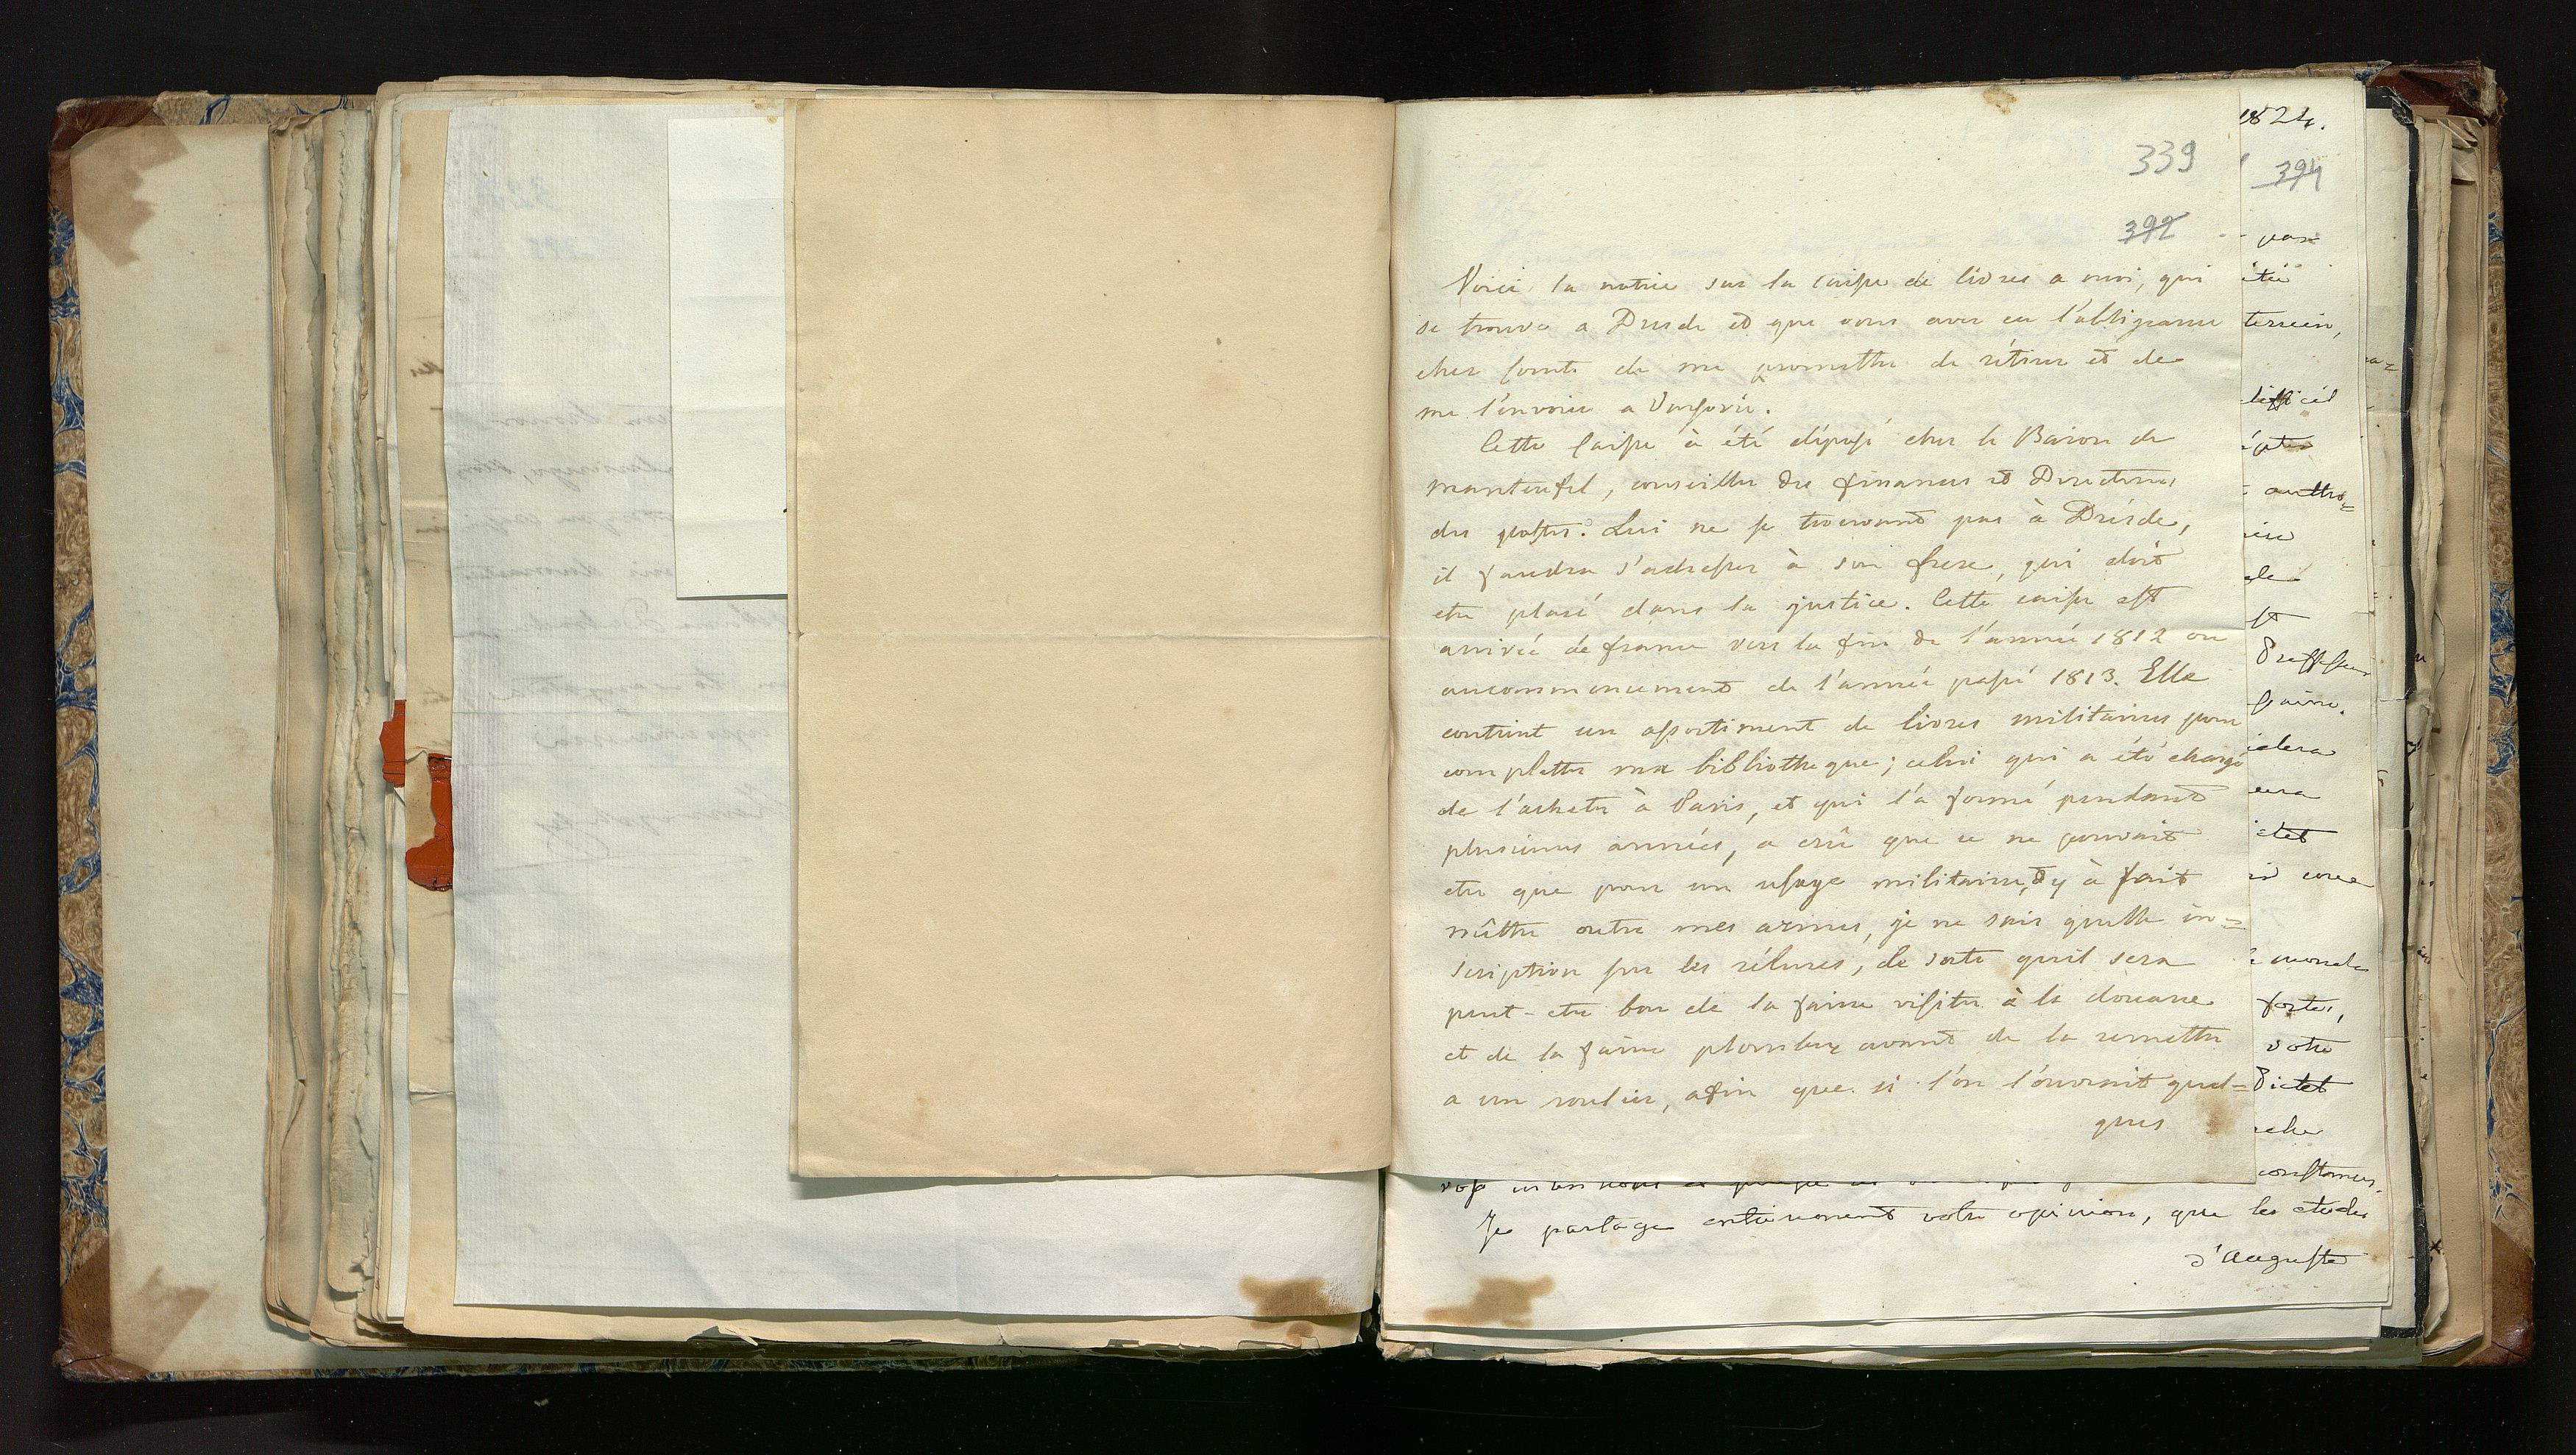 339
392
Voici la notice sur la caisse de livres a moi, qui
se trouve a Dresde et que vous avez eu l'obligeance
cher Comte de me promettre de rétirer et de
me l'envoier a Varsovie.
Cette Caisse à été déposé chez le Baron de
manteufel, conseiller des finances et Directeur
des postes. Lui ne se trouvant pas à Drésde,
il faudra s'adresser à son frere, qui doit
etre plasé dans la justice. Cette caisse est
arrivée dé france vers la fin de l'année 1812 ou
aucommencement de l'année passé 1813. Elle
contient un assortiment de livres militaires pour
completter ma bibliotheque; celui qui a été chargé
de l'acheter à Paris, et qui l'a formé pendant
plusieurs années, a crû que ce ne pouvait
etre que pour un usage militaire, et y à fait
mêttre outre mes armes, je ne sais quelle in=
scription sur les rélures, de sorte qu'il sera
peut-etre bon de la faire visiter à la douane
et de la faire plomber avant de la remettre
a un roulier, afin que si l'on l'ouvrait quel=
ques
1824.
394
pas
terrein,
difficil
autho=
Professeur
faire.
monde
fortes,
votre
Pictet
constances.
Je partage entierement votre opinion, que les etudes
d'Auguste